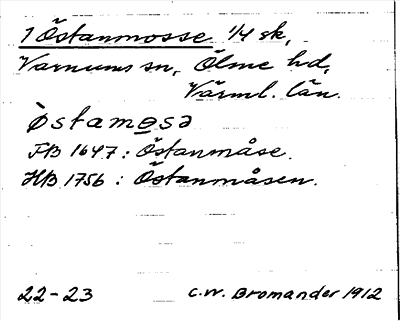 1 Östanmosse 1/4 sk,
Varnums sn, Ölme hd,
Värml. län.
òstamo̲sə
JB 1647: Östanmåse.
HB 1756: Östanmåsen.
22-23 C.W. Bromander 1912